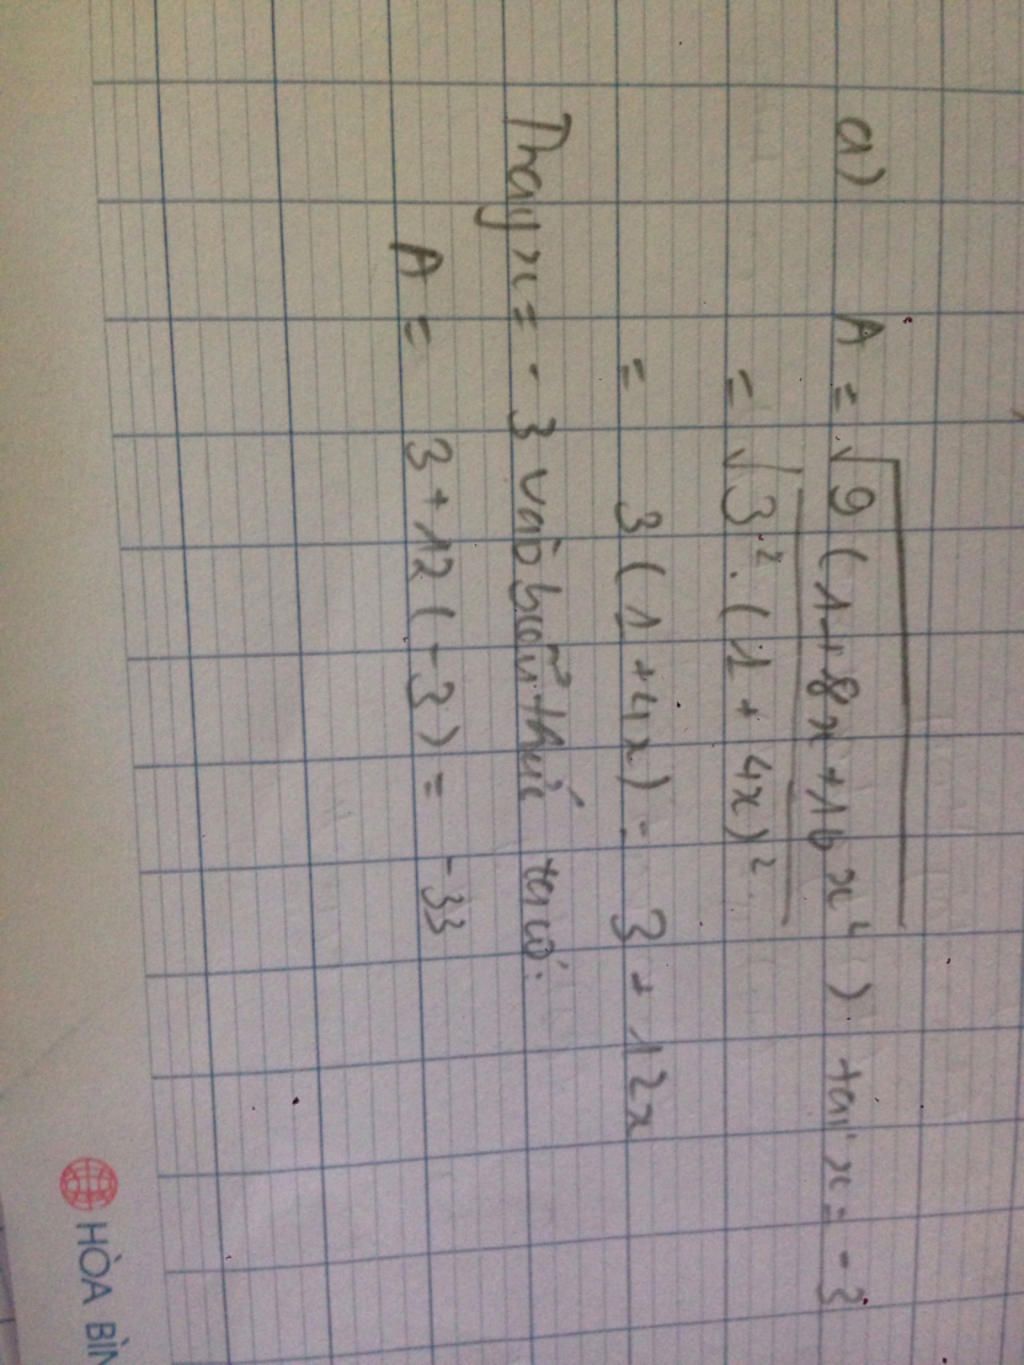 a) A = √9(1+8x+16x²) tại x = -3
= √3².(1+4x)²
= 3(1+4x) = 3+12x
Thay x = -3 vào biểu thức ta có:
A = 3+12(-3) = -33
HÒA BÌN